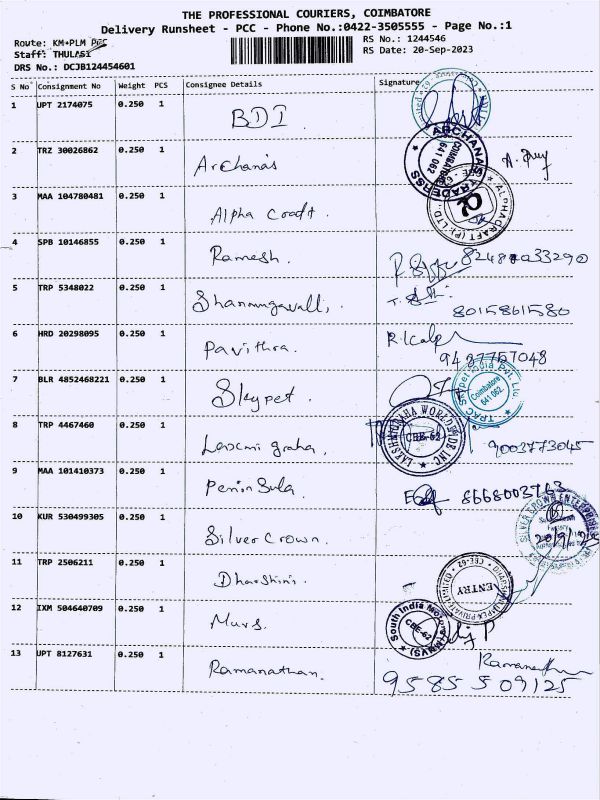 THE PROFESSIONAL COURIERS, COIMBATORE
Delivery Runsheet - PCC - Phone No.:0422-3505555 - Page No.:1
Route: KM+PLM PCC
RS No.: 1244546
Staff: THULASI
RS Date: 20-Sep-2023
DRS No.: DCJB124454601
S No Consignment No Weight PCS Consignee Details Signature
1 UPT 2174075 0.250 1 BDI
2 TRZ 30026862 0.250 1 Archana's
ARCHANA TRADERSS
641 062
COIMBATORE
3 MAA 104780481 0.250 1 Alpha craft.
ALPHACRAFT (P) LTD
4 SPB 10146855 0.250 1 Ramesh.
5 TRP 5348022 0.250 1 Shanmugavalli,
8015861580
6 HRD 20298095 0.250 1 Pavithra.
9487757048
7 BLR 4852468221 0.250 1 Skypet
Coimbatore
641 062
8 TRP 4467460 0.250 1 Laxmi graha,
LAKSHMIGRAHA WORLDWIDE INC
CBE-62
9003773045
9 MAA 101410373 0.250 1 PeninSula
10 KUR 530499305 0.250 1 Silver Crown.
SILVER CROWN ENTERPRISES
11 TRP 2506211 0.250 1 Dharshini
ENTRY
CBE-62
12 IXM 504640709 0.250 1
South India
CBE-62
13 UPT 8127631 0.250 1 Ramanathan.
9585509125